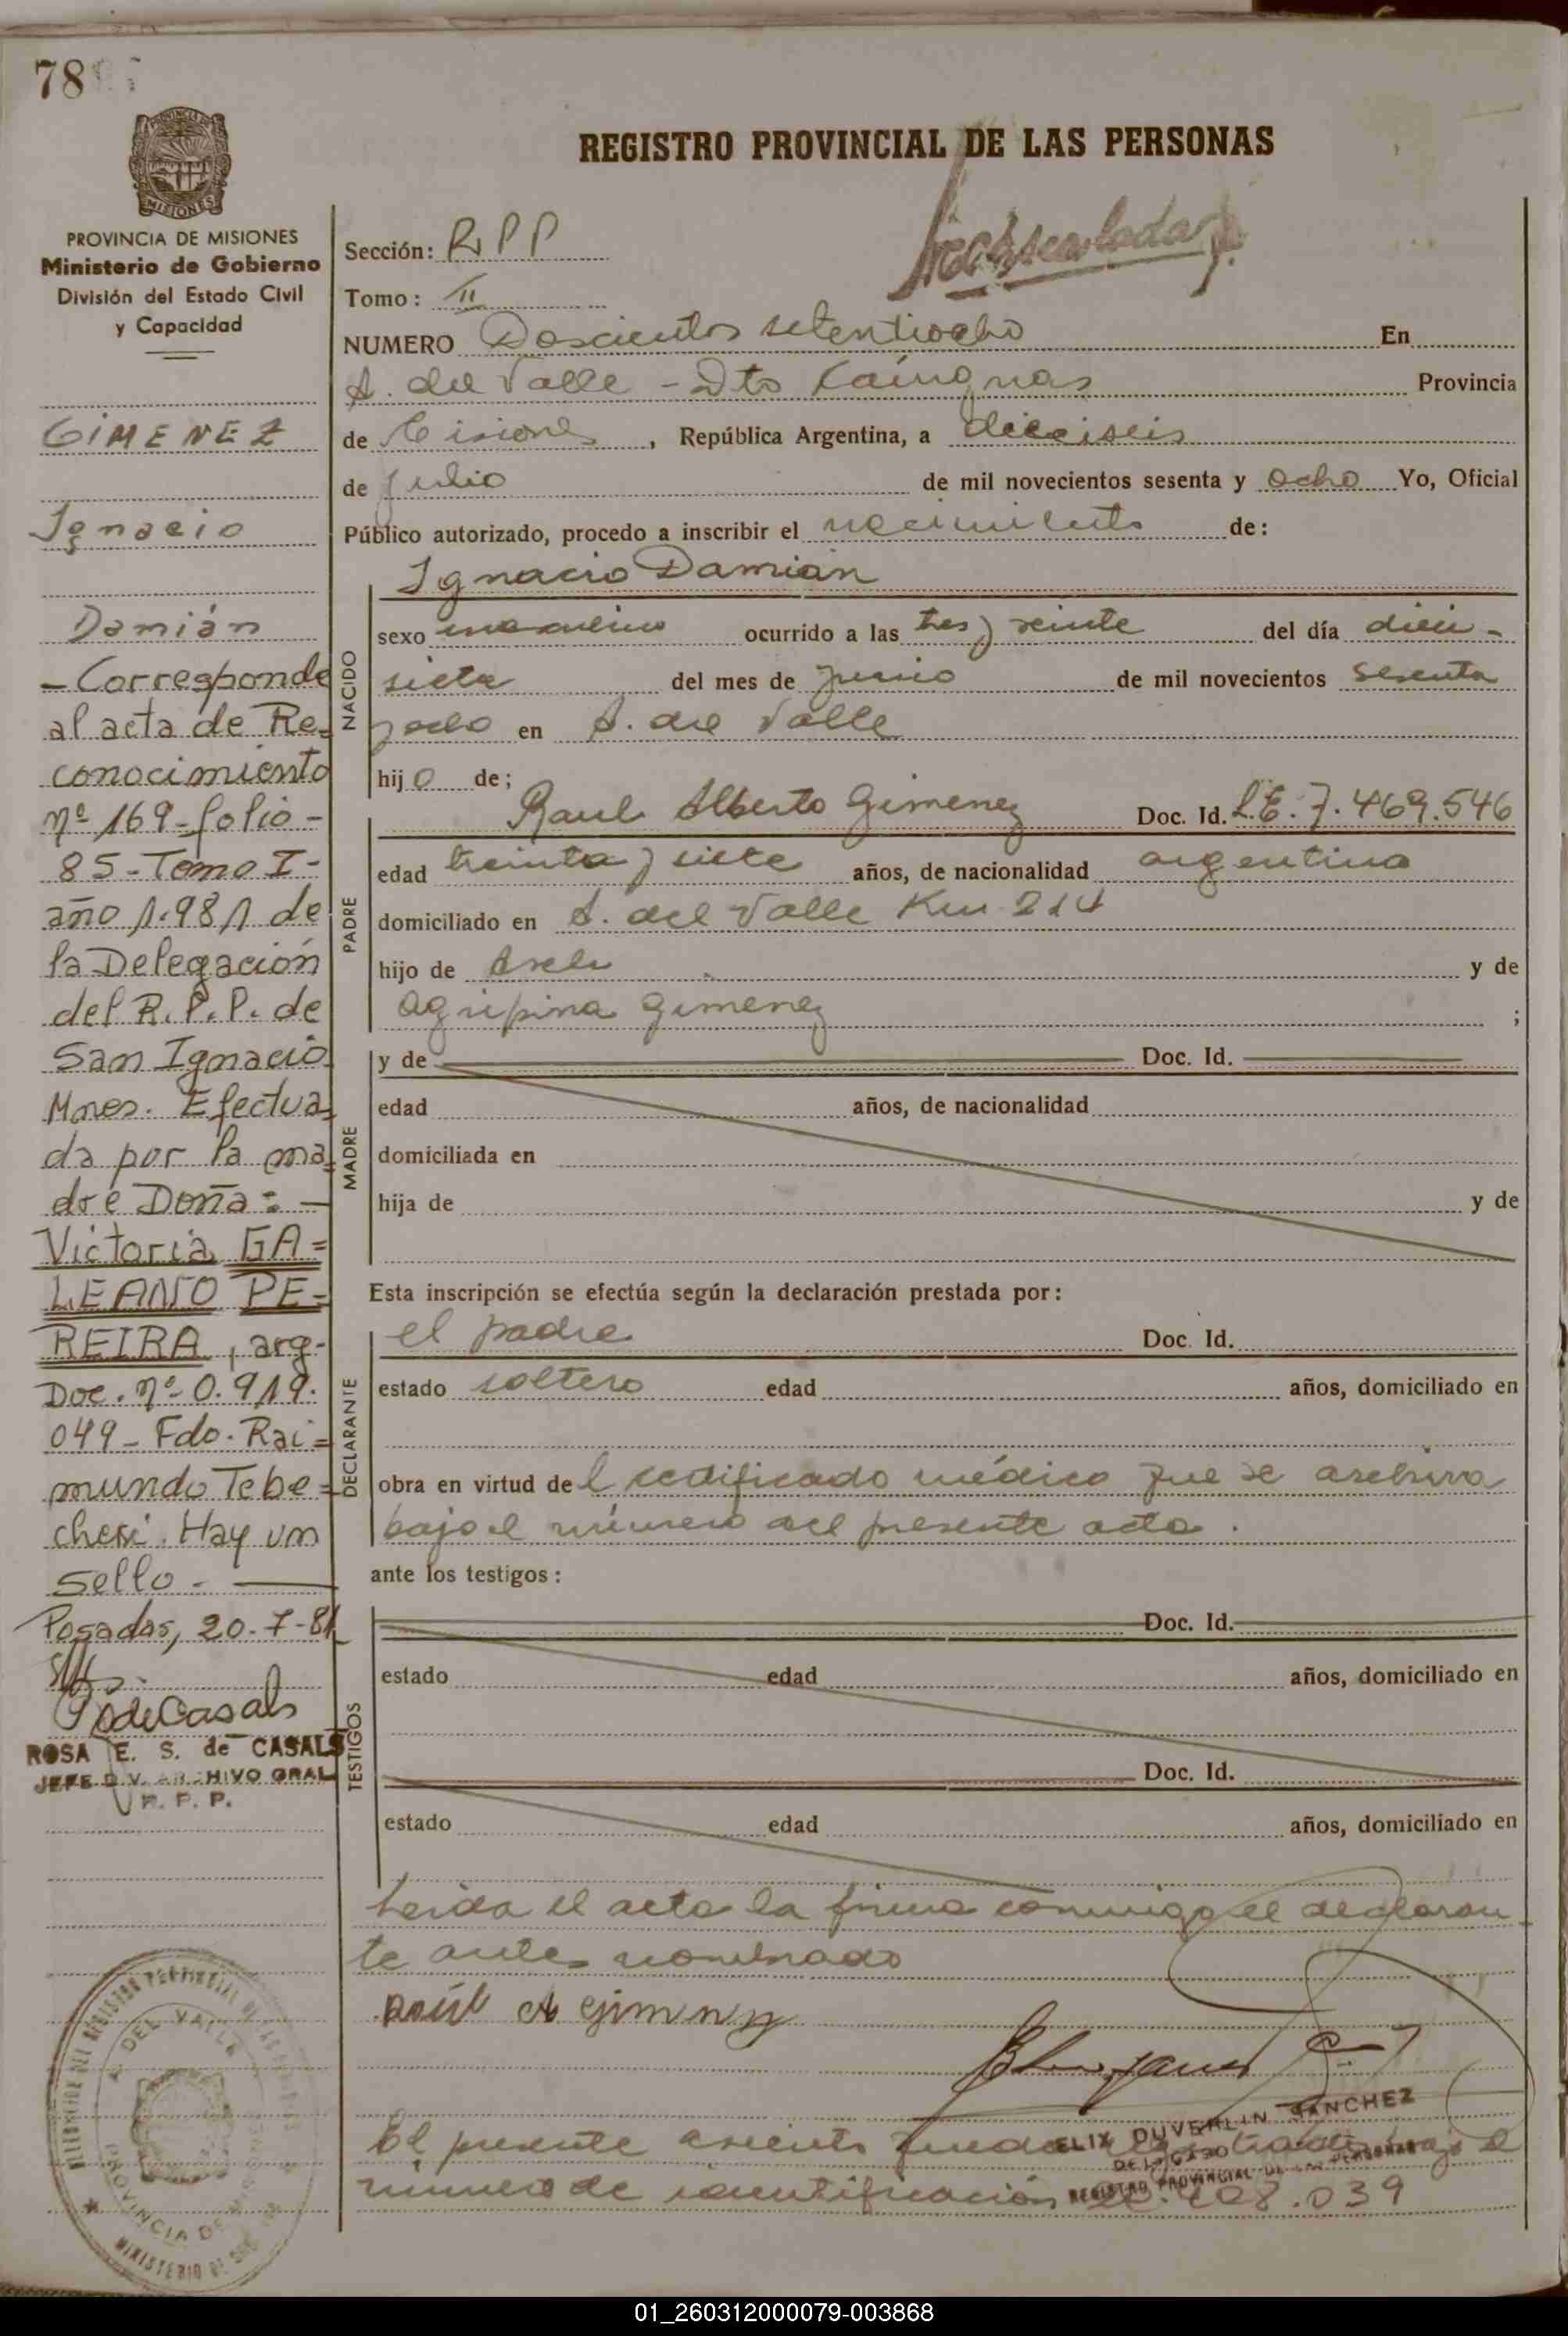 78
REGISTRO PROVINCIAL DE LAS PERSONAS
MISIONES
PROVINCIA DE MISIONES
Ministerio de Gobierno
División del Estado Civil
y Capacidad
GIMENEZ
Ignacio
Damián
- Corresponde
al acta de Re-
conocimiento
nº 169 - folio -
85 - Tomo I -
año 1.981 de
la Delegación
del R.P.P. de
San Ignacio
Mnes. Efectua-
da por la ma-
dre Doña: -
Victoria GA=
LEANO PE-
REIRA, arg-
Doc. nº 0.919.
049 - Fdo. Rai=
mundo Tebe=
chesi. Hay un
sello. -
Posadas, 20-7-81
ROSA E. S. de CASALS
JEFE DIV. ARCHIVO GRAL
R. P. P.
Sección: R P P
Tomo: II
NUMERO Doscientos setentiocho En
A. del Valle - Dto Cainguas Provincia
de Misiones, República Argentina, a dieciseis
de Julio de mil novecientos sesenta y ocho Yo, Oficial
Público autorizado, procedo a inscribir el nacimiento de:
Ignacio Damián
NACIDO
sexo masculino ocurrido a las tres y veinte del día dieci-
siete del mes de junio de mil novecientos sesenta
y ocho en A. del Valle
hijo de;
PADRE
Raul Alberto Gimenez Doc. Id. L.E. 7.469.546
edad treinta y siete años, de nacionalidad argentina
domiciliado en A. del Valle Km 214
hijo de y de
Agripina Gimenez ;
MADRE
y de Doc. Id.
edad años, de nacionalidad
domiciliada en
hija de y de
Esta inscripción se efectúa según la declaración prestada por:
DECLARANTE
el padre Doc. Id.
estado soltero edad años, domiciliado en
obra en virtud del certificado médico que se archiva
bajo el número del presente acta.
ante los testigos:
TESTIGOS
Doc. Id.
estado edad años, domiciliado en
Doc. Id.
estado edad años, domiciliado en
Leida el acta la firma conmigo el declaran-
te antes nombrado
El presente asiento queda bajo el
número de identificación .039
FELIX DUVERLIN SANCHEZ
DELEGADO
REGISTRO PROVINCIAL DE LAS PERSONAS
A. DEL VALLE
PROVINCIA DE MISIONES
01_260312000079-003868